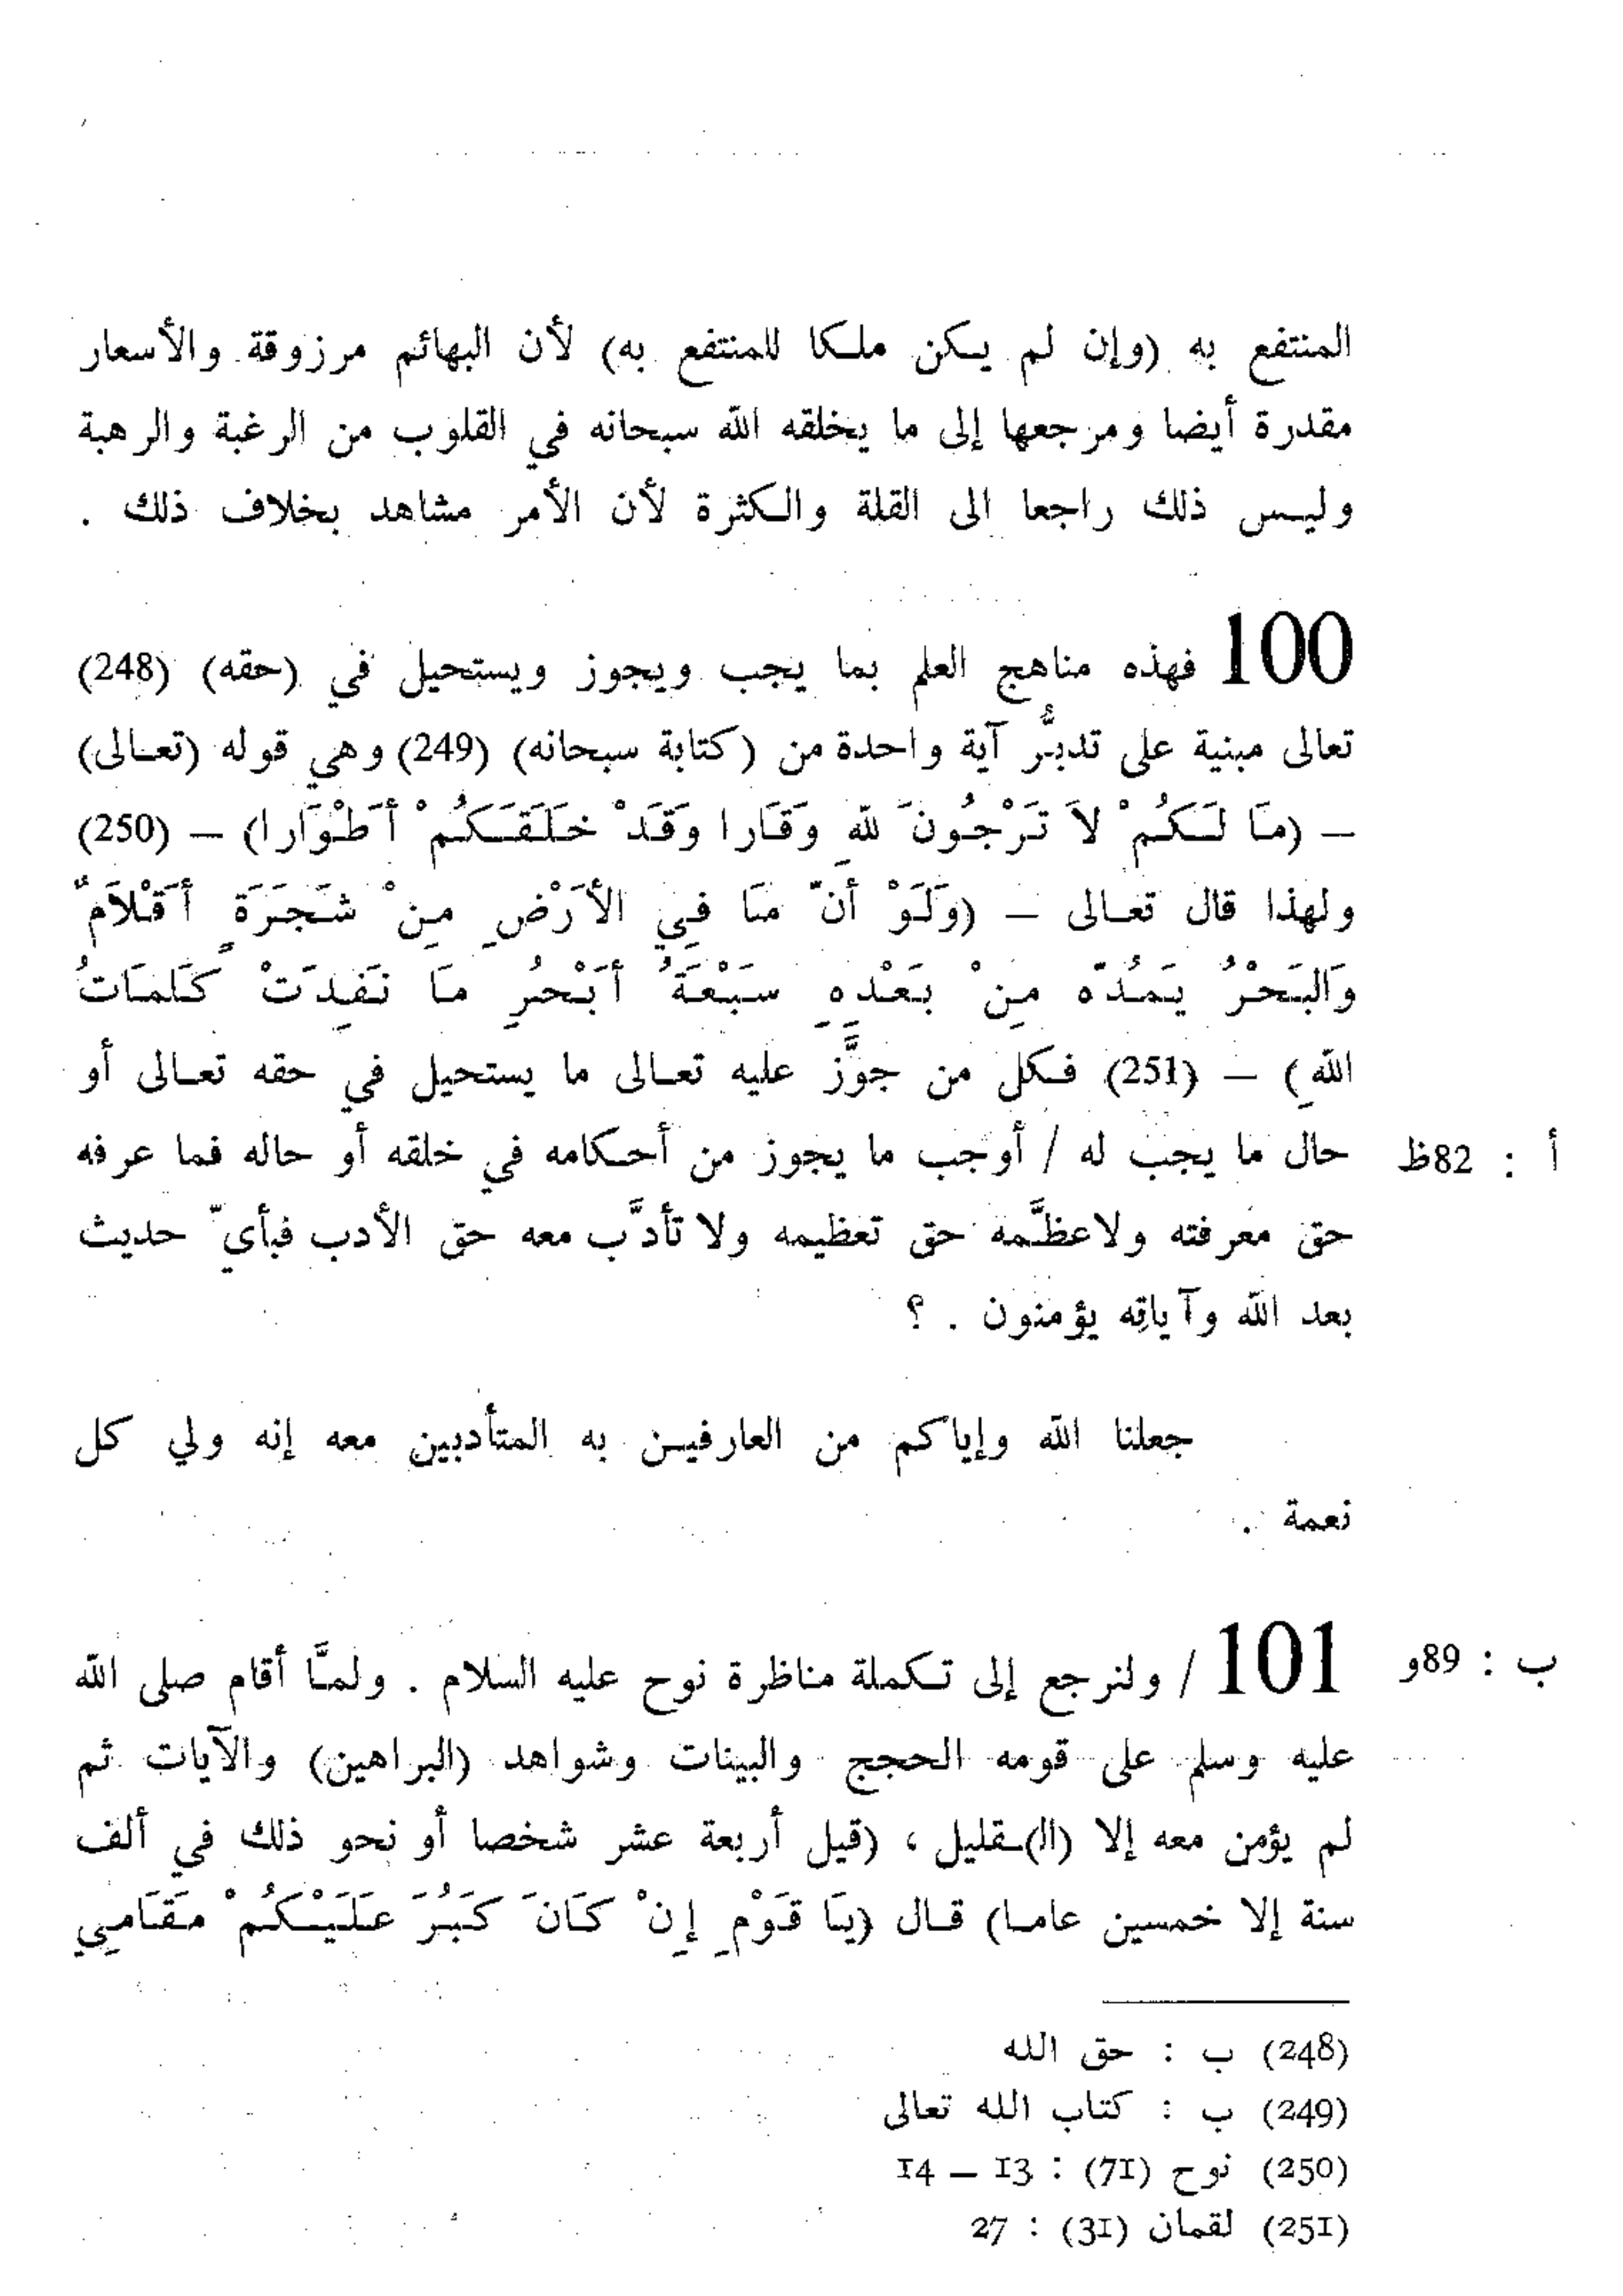 المنتفع به (وإن لم يكن ملكا للمنتفع به) لأن البهائم مرزوقة والأسعار
مقدرة أيضا ومرجعها إلى ما يخلقه الله سبحانه في القلوب من الرغبة والرهبة
وليس ذلك راجعا الى القلة والكثرة لأن الأمر مشاهد بخلاف ذلك .
100 فهذه مناهج العلم بما يجب ويجوز ويستحيل في (حقه) (248)
تعالى مبنية على تدبُّر آية واحدة من (كتابة سبحانه) (249) وهي قوله (تعالى)
– (مَا لَكُمْ لاَ تَرْجُونَ للهِ وَقَارا وَقَدْ خَلَقَكُمْ أَطْوَارا) – (250)
ولهذا قال تعالى – (وَلَوْ أنّ مَا فِي الأرَْضِ مِنْ شَجَرَةٍ أقْلاَمٌ
وَالبَحْرُ يَمُدّه مِنْ بَعْدِهِ سَبْعَةُ أبْحُرِ مَا نَفِدَتْ كَلِمَاتُ
اللهِ) – (251) فكل من جوَّز عليه تعالى ما يستحيل في حقه تعالى أو
حال ما يجب له / أوجب ما يجوز من أحكامه في خلقه أو حاله فما عرفه
أ : 82ظ
حق معرفته ولاعظَّمه حق تعظيمه ولا تأدَّب معه حق الأدب فبأيّ حديث
بعد الله وآياتِه يؤمنون . ؟
جعلنا الله وإياكم من العارفين به المتأدبين معه إنه ولي كل
نعمة .
101 / ولنرجع إلى تكملة مناظرة نوح عليه السلام . ولمَّا أقام صلى الله
ب : 89و
عليه وسلم على قومه الحجج والبينات وشواهد (البراهين) والآيات ثم
لم يؤمن معه إلا (الـ)ـقليل ، (قيل أربعة عشر شخصا أو نحو ذلك في ألف
سنة إلا خمسين عاما) قال (يَا قَوْمِ إِنْ كَانَ كَبُرَ عَلَيْكُمْ مَقَامِي
(248) ب : حق الله
(249) ب : كتاب الله تعالى
(250) نوح (71) : 13 – 14
(251) لقمان (31) : 27